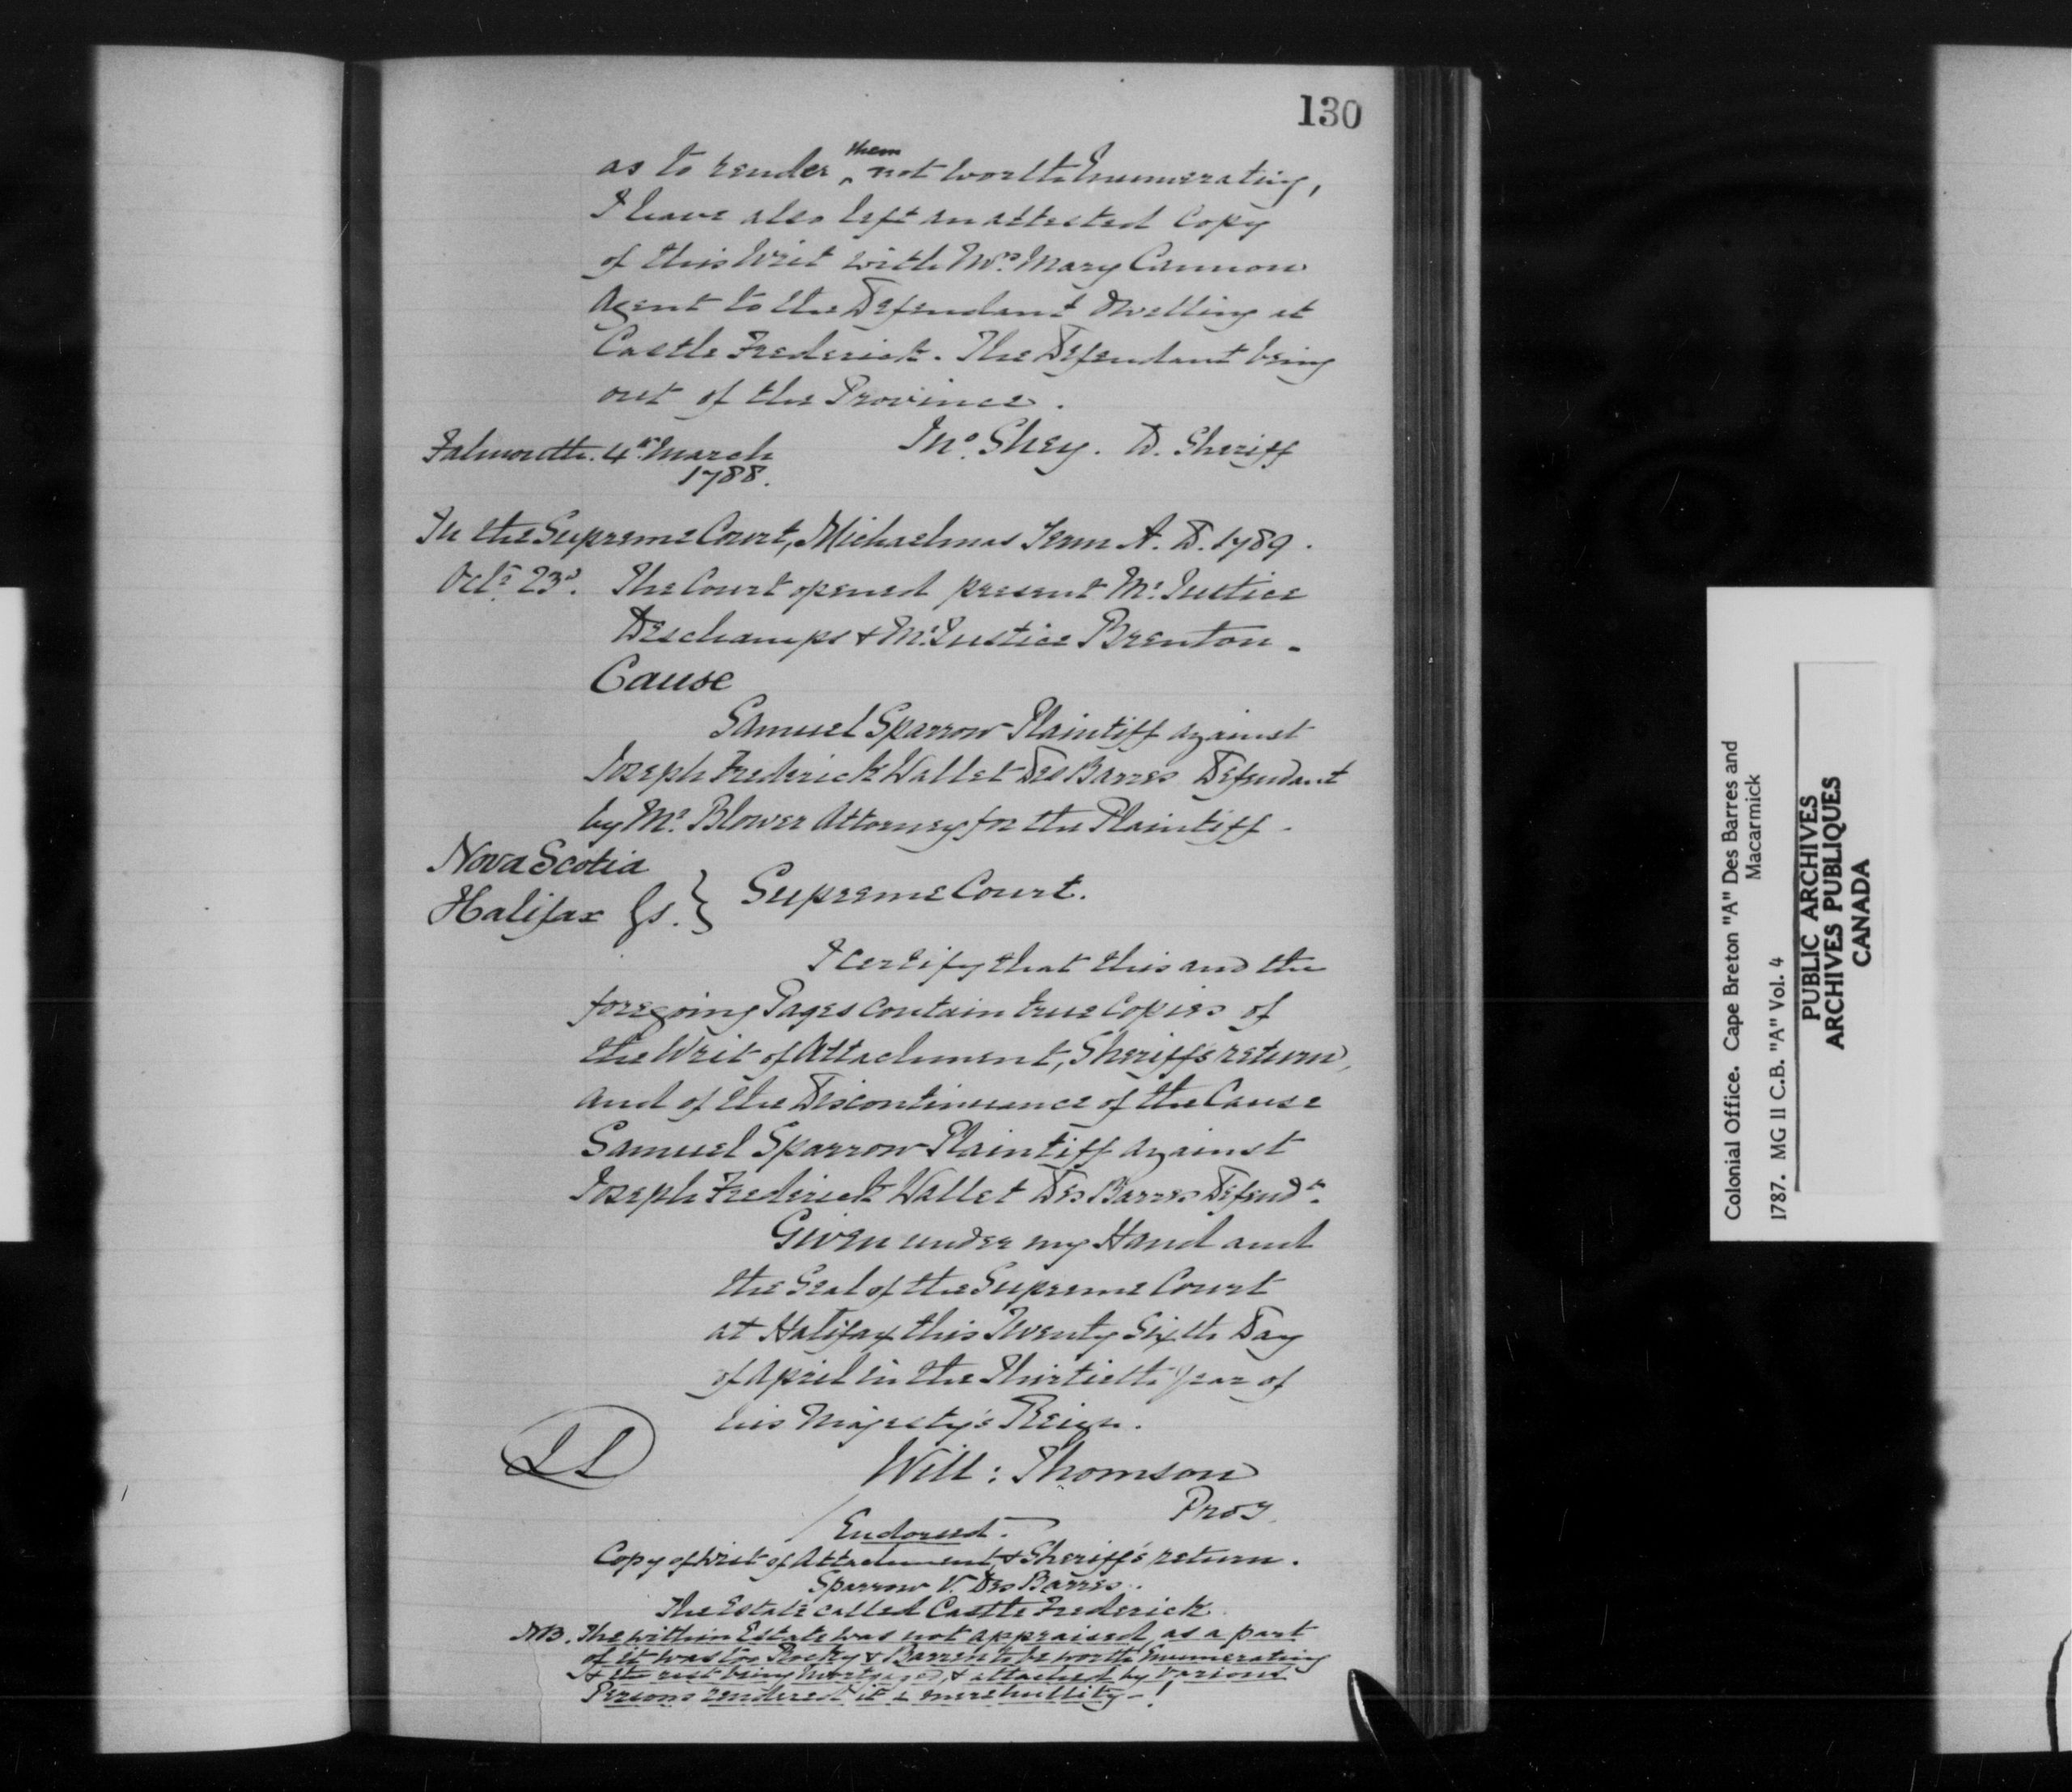 130
as to render ^them not worth Enumerating,
I have also left an attested Copy
of this Writ with Mrs. Mary Cannon
Agent to the Defendant dwelling at
Castle Frederick. The Defendant being
out of the Province.
Jno. Shey. D. Sheriff
Falmouth. 4th March
1788.
In the Supreme Court, Michaelmas Term A. D. 1789.
Octr. 23d. The Court opened present Mr. Justice
Deschamps & Mr. Justice Brenton.
Cause
Samuel Sparrow Plaintiff against
Joseph Frederick Wallet Des Barres Defendant
by Mr. Blower Attorney for the Plaintiff.
Nova Scotia
Halifax Ss. } Supreme Court.
I certify that this and the
foregoing Pages contain true Copies of
the Writ of Attachment, Sheriff's return,
and of the Discontinuance of the Cause
Samuel Sparrow Plaintiff against
Joseph Frederick Wallet Des Barres Defendt.
Given under my Hand and
the Seal of the Supreme Court
at Halifax this Twenty Sixth Day
of April in the Thirtieth Year of
his Majesty's Reign.
LS
Will: Thomson
Proy.
Endorsed.
Copy of Writ of Attachment, & Sheriff's return.
Sparrow V. Des Barres.
The Estate called Castle Frederick
NB. The within Estate was not appraised, as a part
of it was too Rocky & Barren to be worth Enumerating
& the rest being Mortgaged, & attached by various
Persons rendered it a mere nullity-!
Colonial Office. Cape Breton "A" Des Barres and
Macarmick
1787. MG II C.B. "A" Vol. 4
PUBLIC ARCHIVES
ARCHIVES PUBLIQUES
CANADA